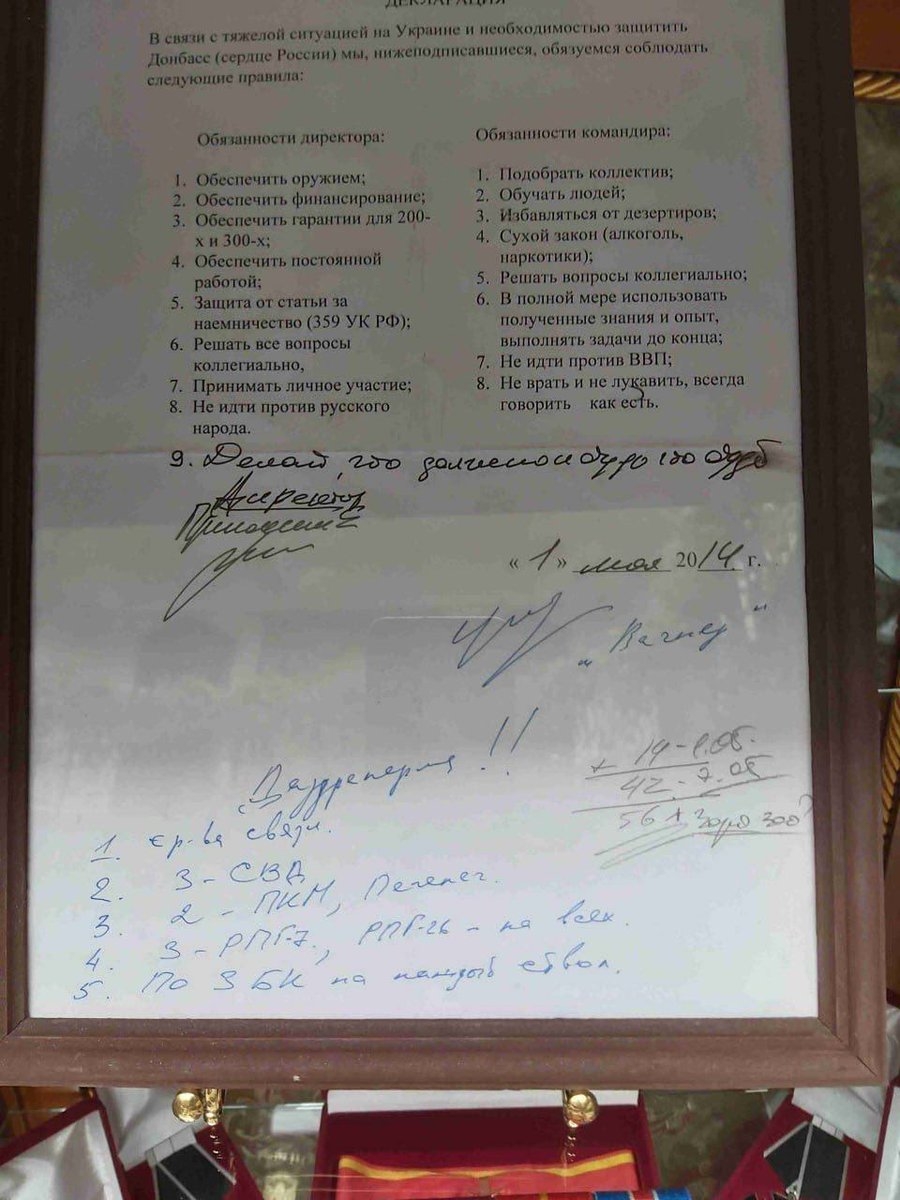 ДЕКЛАРАЦИЯ
В связи с тяжелой ситуацией на Украине и необходимостью защитить
Донбасс (сердце России) мы, нижеподписавшиеся, обязуемся соблюдать
следующие правила:
Обязанности директора:
1. Обеспечить оружием;
2. Обеспечить финансирование;
3. Обеспечить гарантии для 200-
х и 300-х;
4. Обеспечить постоянной
работой;
5. Защита от статьи за
наемничество (359 УК РФ);
6. Решать все вопросы
коллегиально,
7. Принимать личное участие;
8. Не идти против русского
народа.
Обязанности командира:
1. Подобрать коллектив;
2. Обучать людей;
3. Избавляться от дезертиров;
4. Сухой закон (алкоголь,
наркотики);
5. Решать вопросы коллегиально;
6. В полной мере использовать
полученные знания и опыт,
выполнять задачи до конца;
7. Не идти против ВВП;
8. Не врать и не лукавить, всегда
говорить как есть.
9. Делай, что должно и будь что будет
Директор
Пригожин Е
«1» мая 2014 г.
„Вагнер"
!!
1. ср-ва связи.
2. 3 - СВД
3. 2 - ПКМ, Печенег.
4. 3 - РПГ-7, РПГ-26 - на всех.
5. По 3 БК на каждый ствол.
+ 14 - 1.05.
42 - 7.05
56